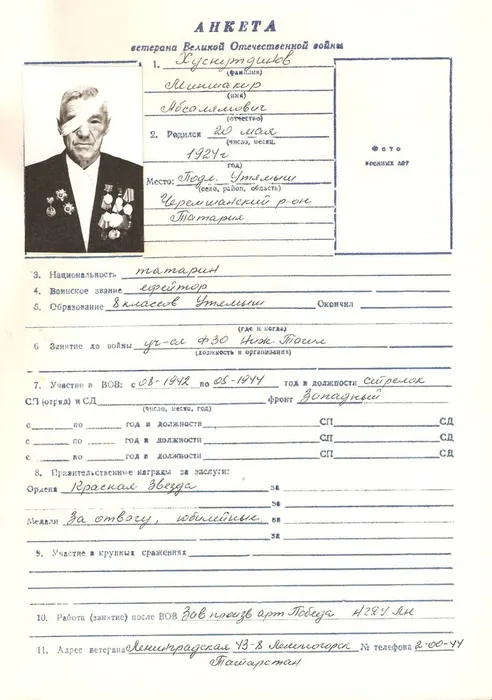 АНКЕТА
ветерана Великой Отечественной войны
1. Хуснутдинов
(фамилия)
Миншакир
(имя)
Абсалямович
(отчество)
2. Родился 20 мая
(число, месяц,
1924г
год)
Место: Подл. Утямыш
(село, район, область)
Черемшанский р-он
Татария
Фото
военных лет
3. Национальность татарин
4. Воинское звание ефрейтор
5. Образование 8 классов Утямыш Окончил
(где и когда)
6 Занятие до войны уч-ся ФЗО Ниж. Тагил
(должность и организация)
7. Участие в ВОВ: с 08-1942 по 05-1944 год и должности стрелок
СП (отряд) и СД фронт Западный
(число, месяц, год)
с по год и должности СП СД
с по год и должности СП СД
с по год и должности СП СД
8. Правительственные награды за заслуги:
Ордена Красная Звезда за
за
Медали За отвагу, юбилейные за
за
9. Участие в крупных сражениях
10. Работа (занятие) после ВОВ Зав произв арт Победа
11. Адрес ветерана Ленинградская 43-8 Лениногорск № телефона 2-00-44
Татарстан